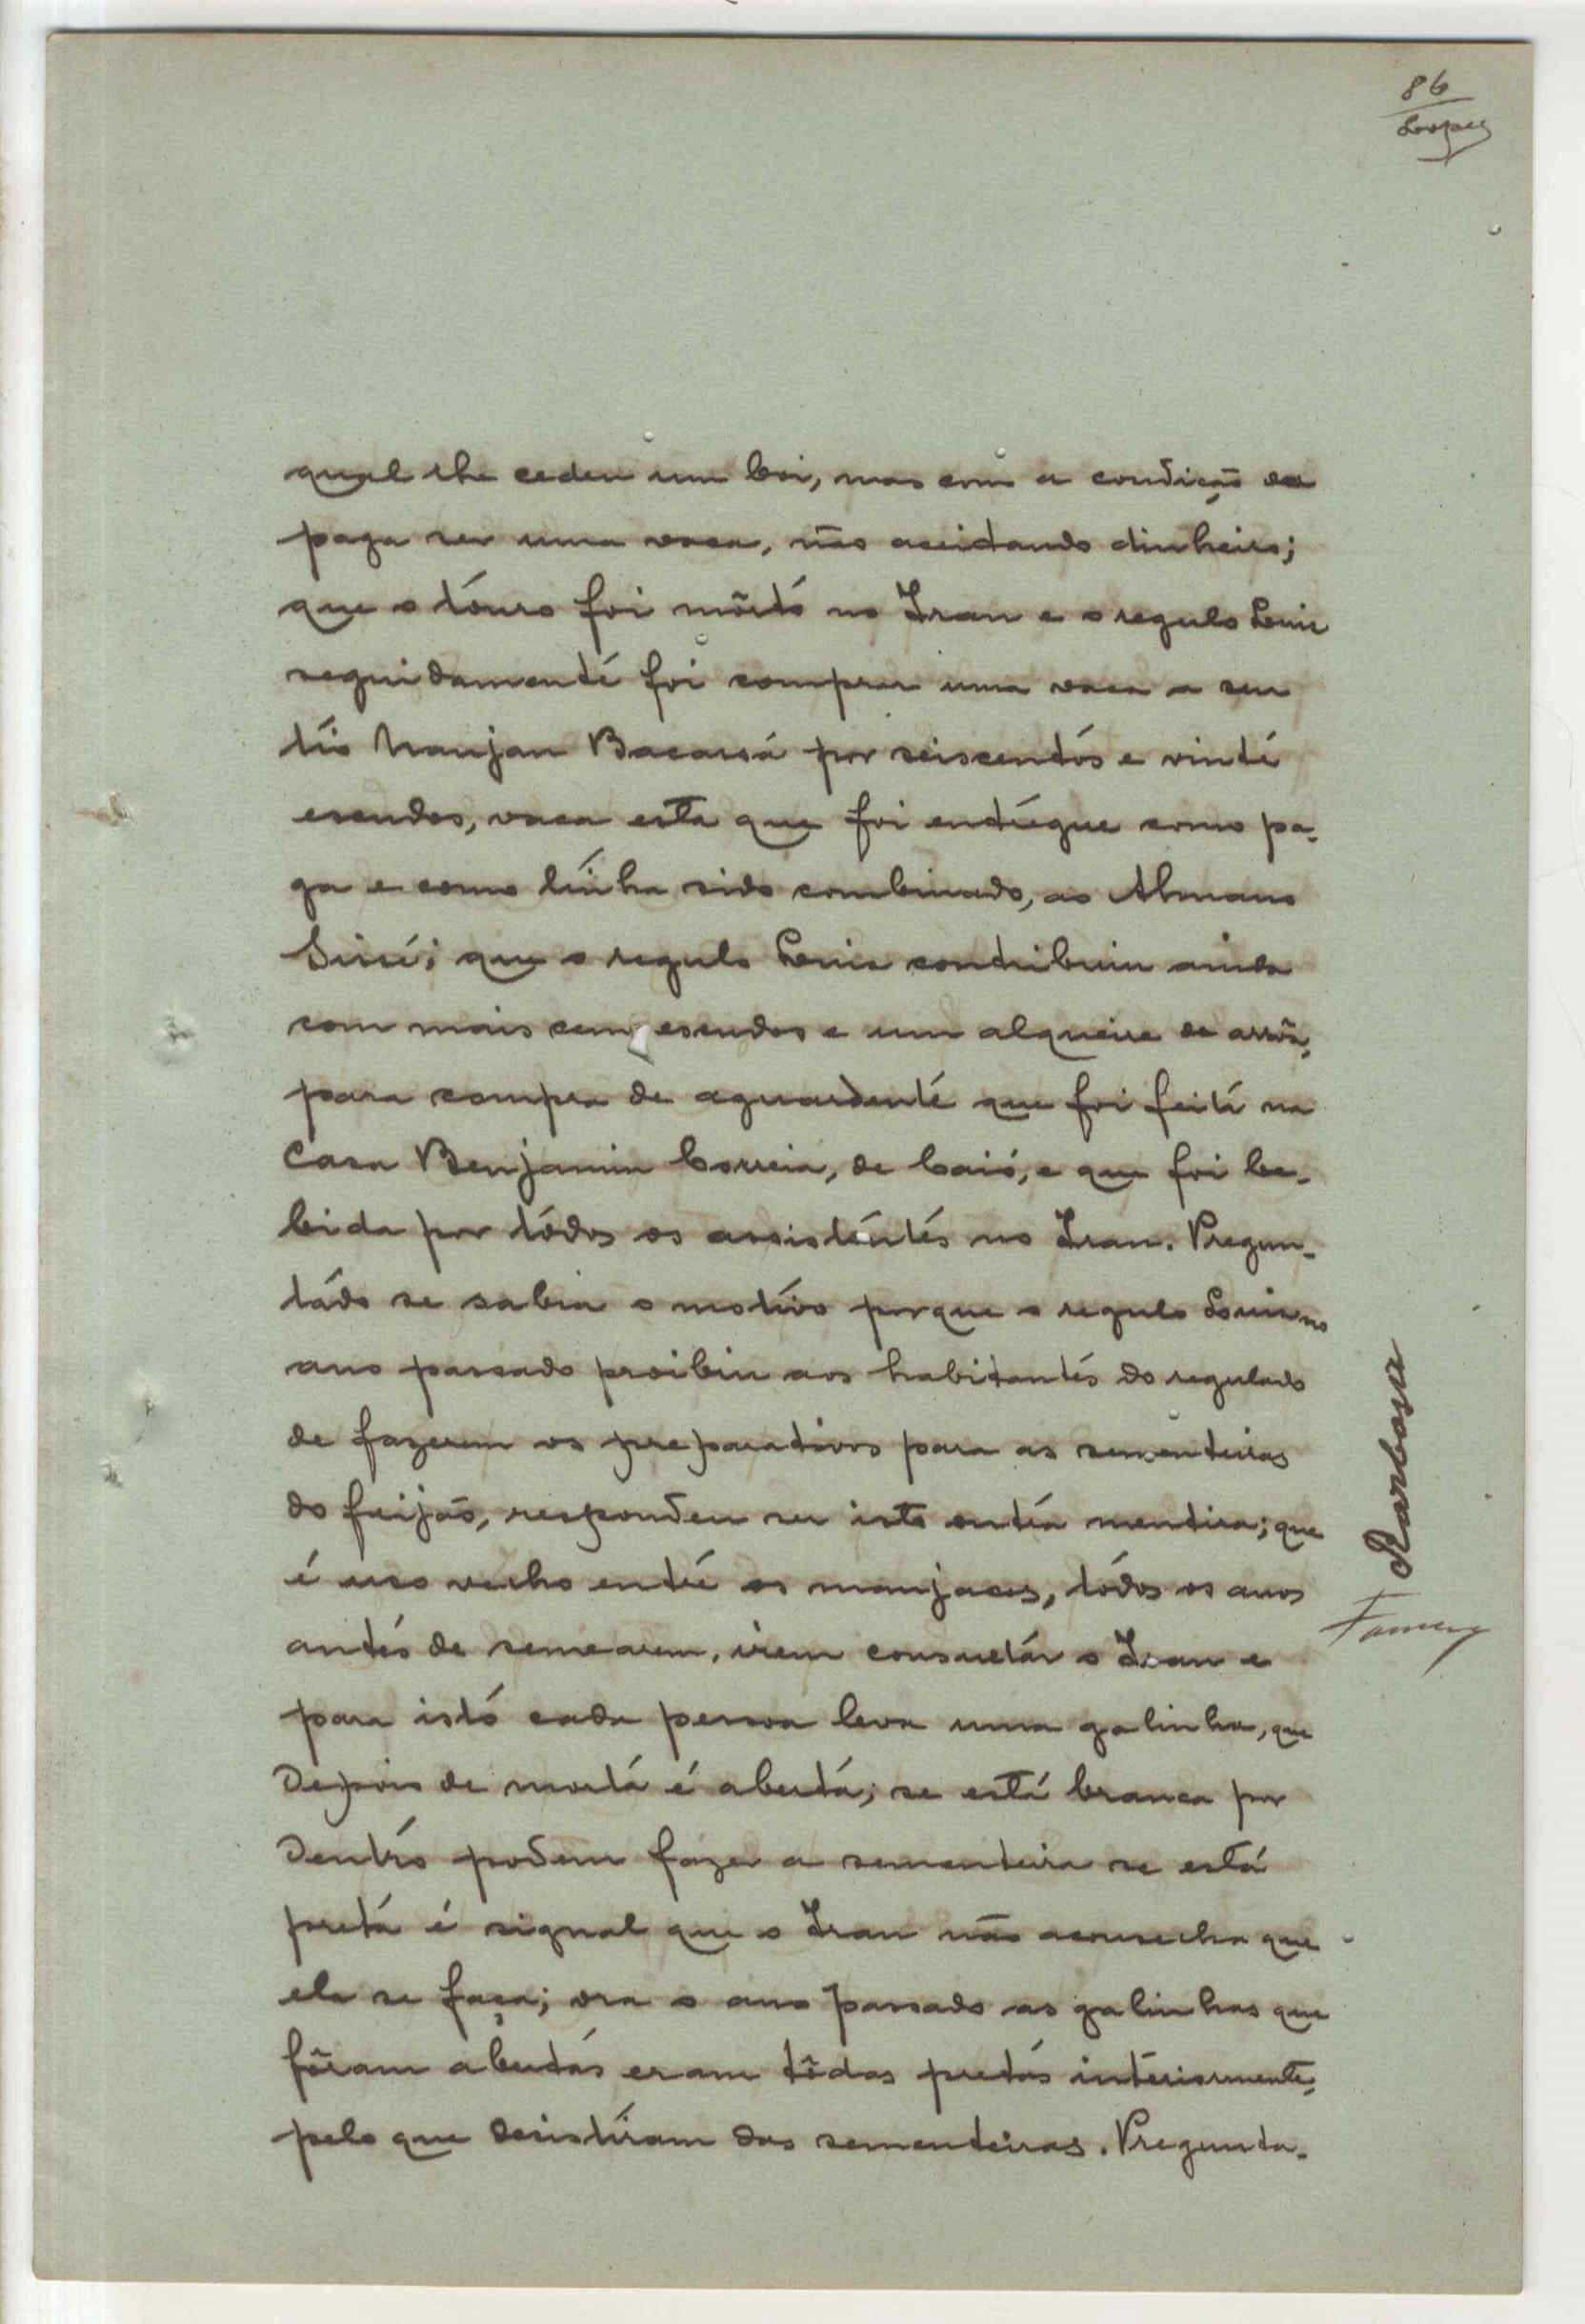 86
Lopes
qual lhe cedeu um boi, mas com a condição da
paga ser uma vaca, não aceitando dinheiro;
que o touro foi môrto no Iran e o regulo Luis
seguidamente foi comprar uma vaca a seu
tio Naujan Bacarsá por seiscentos e vinte
escudos, vaca esta que foi entregue como pa-
ga e como tinha sido combinado, ao Almano
que o regulo Luis contribuiu ainda
com mais cem escudos e um alqueire de arrôs,
para compra de aguardente que foi feita na
Casa Benjamim Correia, de Caió, e que foi be-
bida por tôdos os assistentes no Iran. Pregun-
tado se sabia o motivo porque o regulo Luis no
ano passado proibiu aos habitantes do regulado
de fazerem os preparativos para as sementeiras
do feijão, respondeu ser isto outra mentira; que
é uso velho entre os manjacos, tódos os anos
antes de semearem, irem consultar o Iran e
para isto cada pessoa leva uma galinha, que
depois de morta é aberta; se está branca por
dentro podem fazer a sementeira se está
preta é signal que o Iran não aconselha que
ela se faça; ora o ano passado as galinhas que
fôram abertas eram tôdas pretas interiormente,
pelo que desistiram das sementeiras. Pregunta-
Barbosa